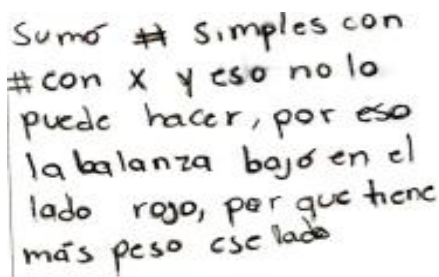 Sumó # simples con
# con x y eso no lo
puede hacer, por eso
la balanza bajó en el
lado rojo, por que tiene
más peso ese lado